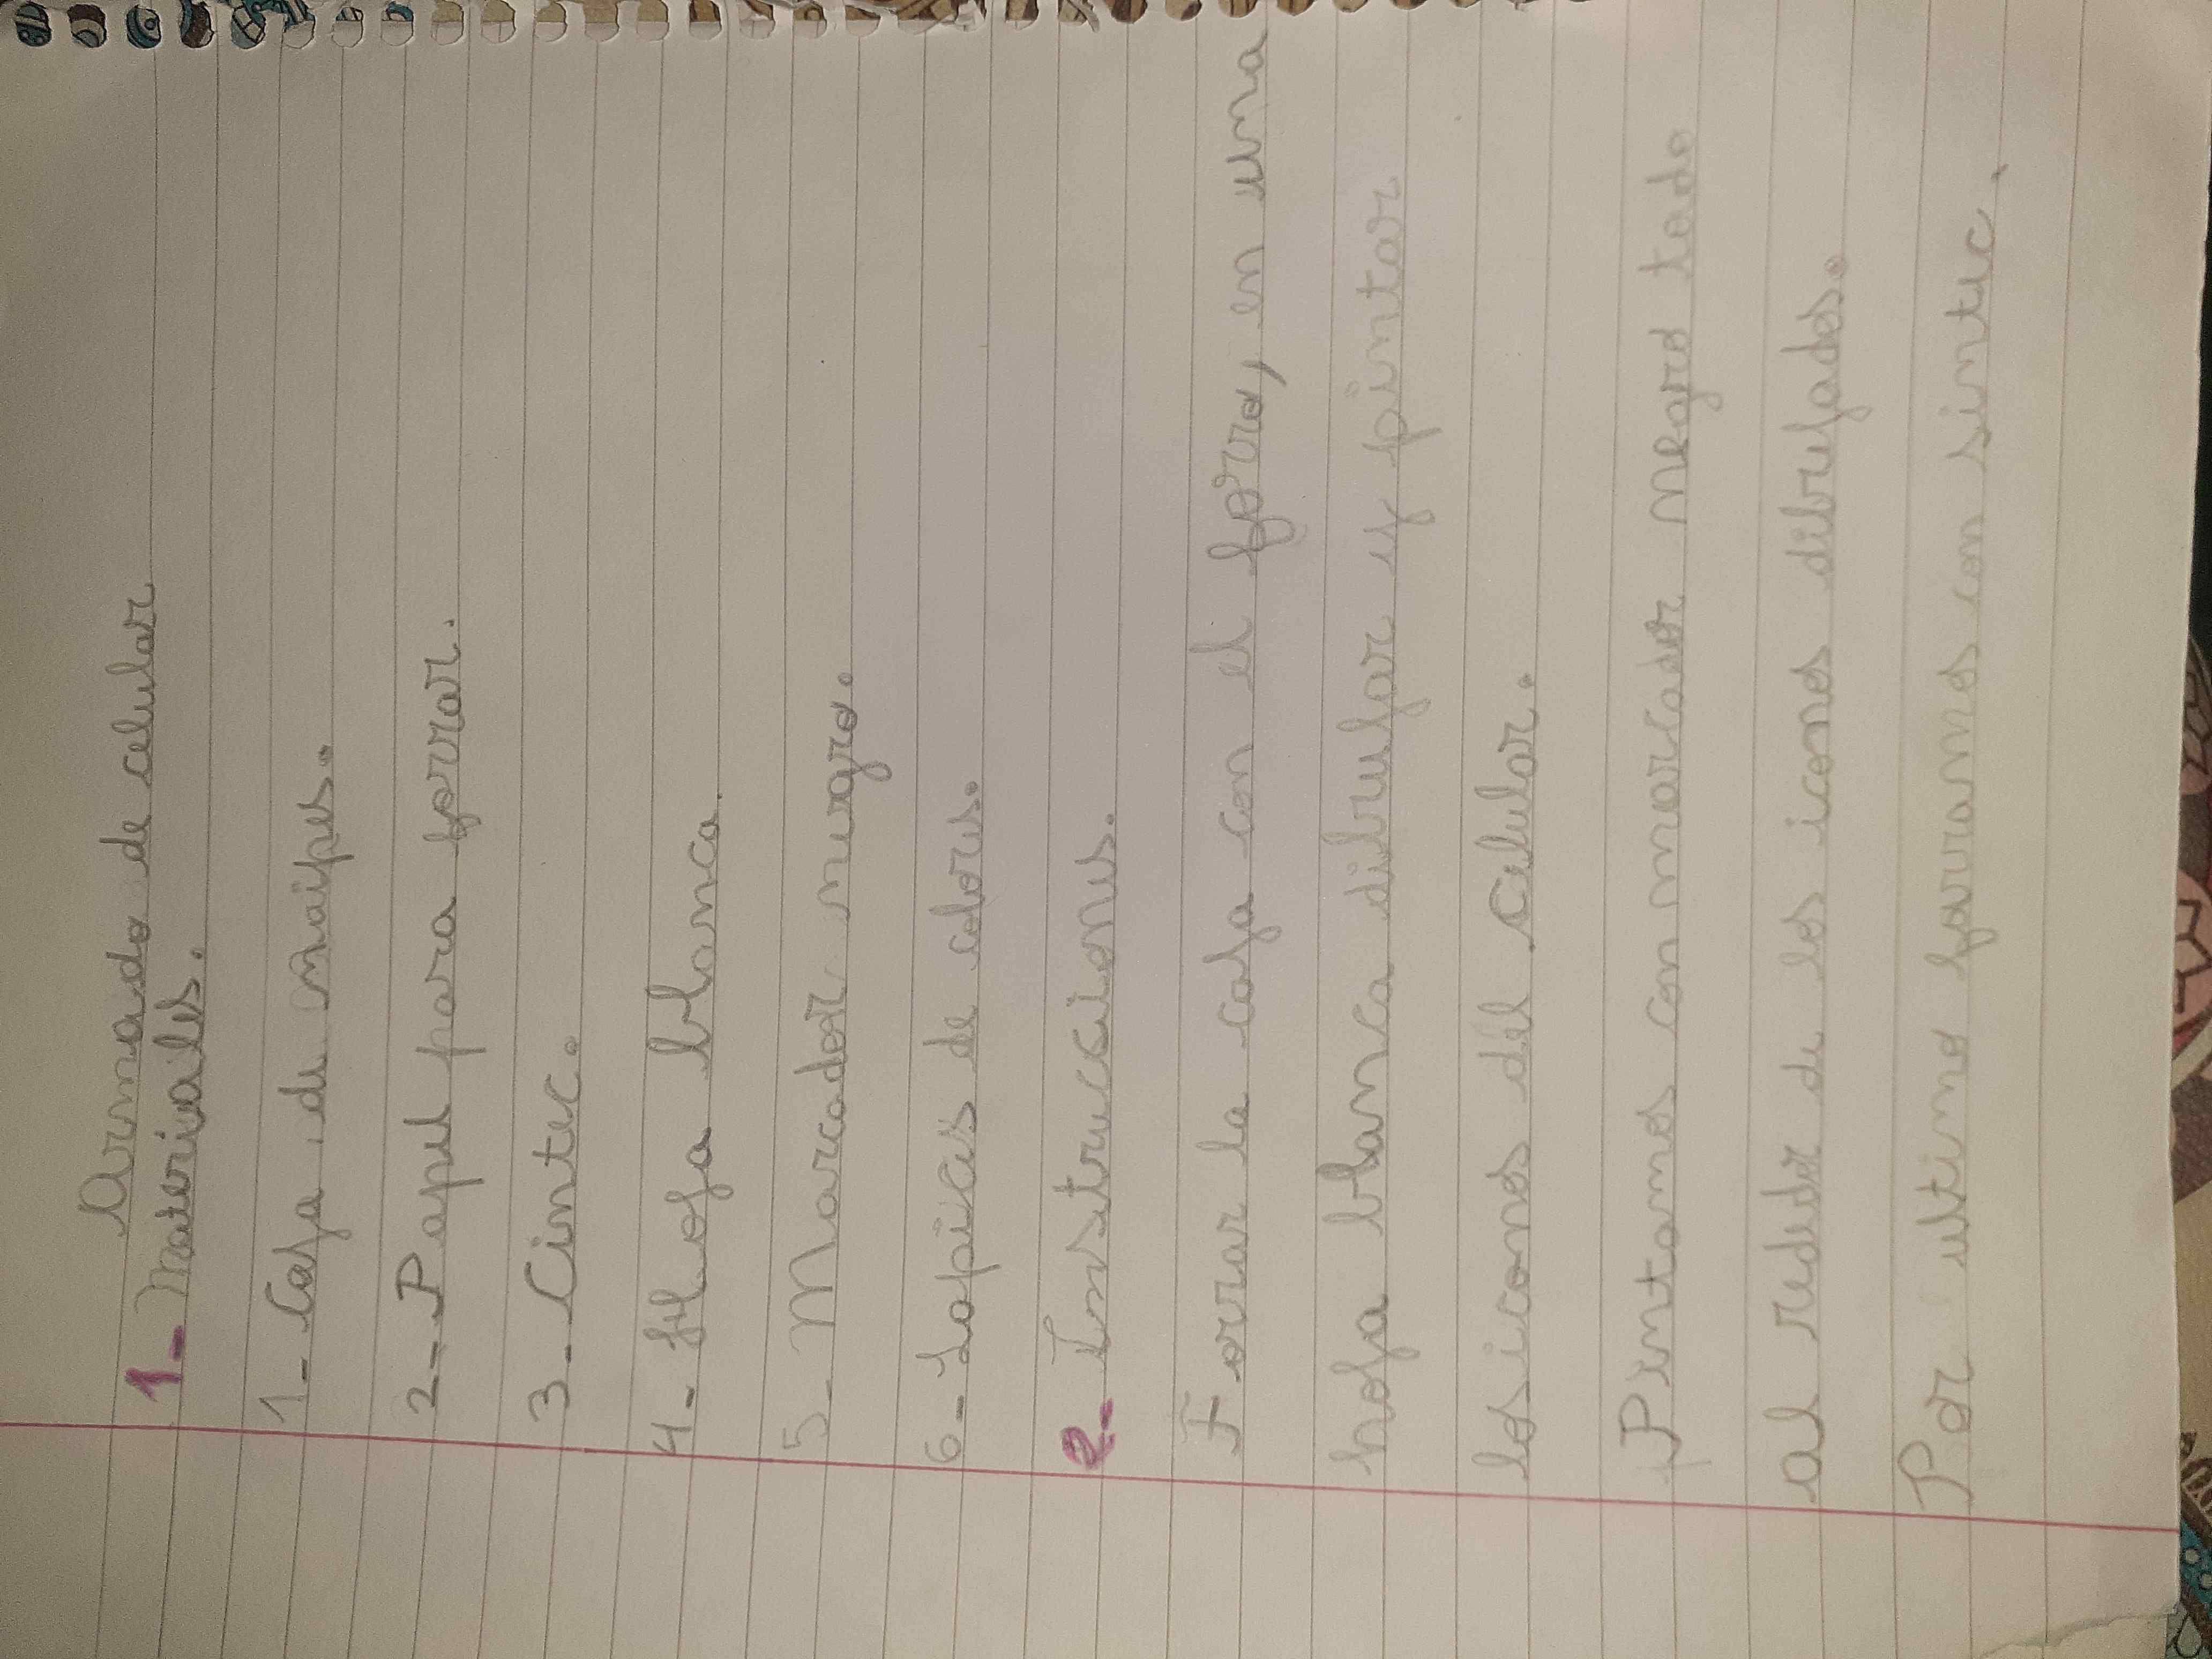 Armado de celular
1- Materiales.
1- Caja de naipes.
2- Papel para forrar.
3- Cintec.
4- Hoja blanca.
5- Marcador nuegro.
6- Lapices de colores.
2- Instrucciones.
Forrar la caja con el forro, en una
hoja blanca dibrujar y pintar
los iconos del celular.
Pintamos con marcador negro todo
al rededor de los iconos dibrujados.
Por ultimo forramos con sintec.